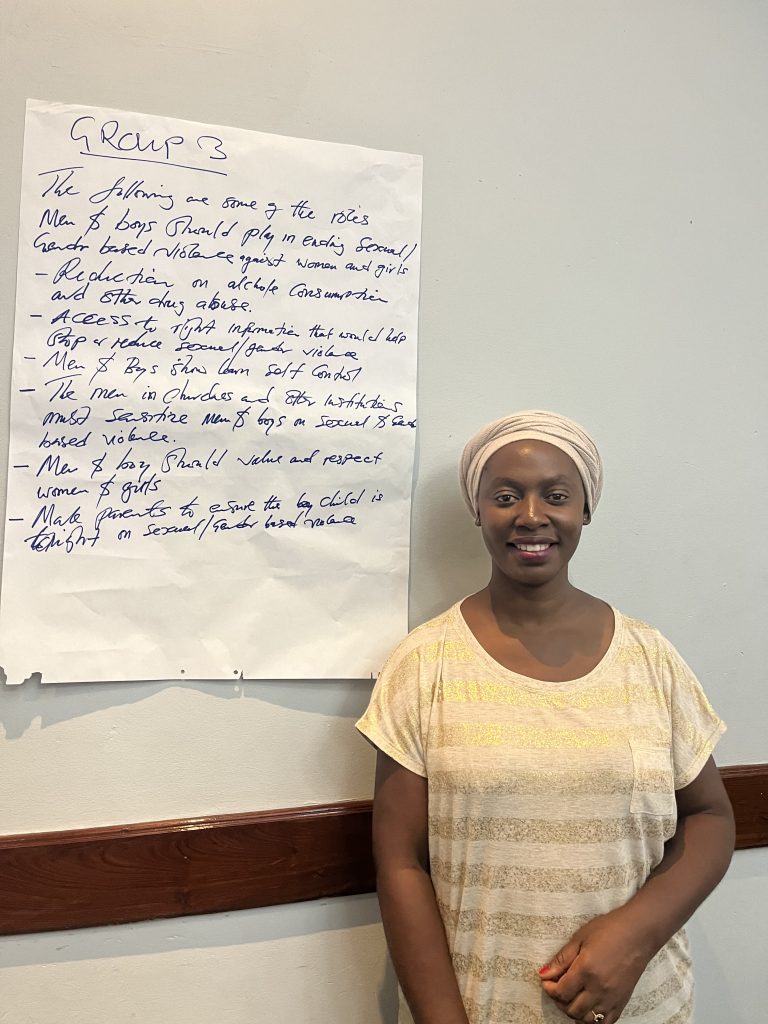 GROUP 3
The following are some of the roles
Men & boys should play in ending sexual/
Gender based violence against women and girls
- Reduction on alchole consumption
and other drug abuse.
- Access to right information that would help
stop or reduce sexual/gender violence
- Men & Boys show learn self control
- The men in churches and other institutions
must sensitize men & boys on sexual &
based violence.
- Men & boy should value and respect
women & girls
- Male parents to esure the boy child is
on sexual/Gender based violence